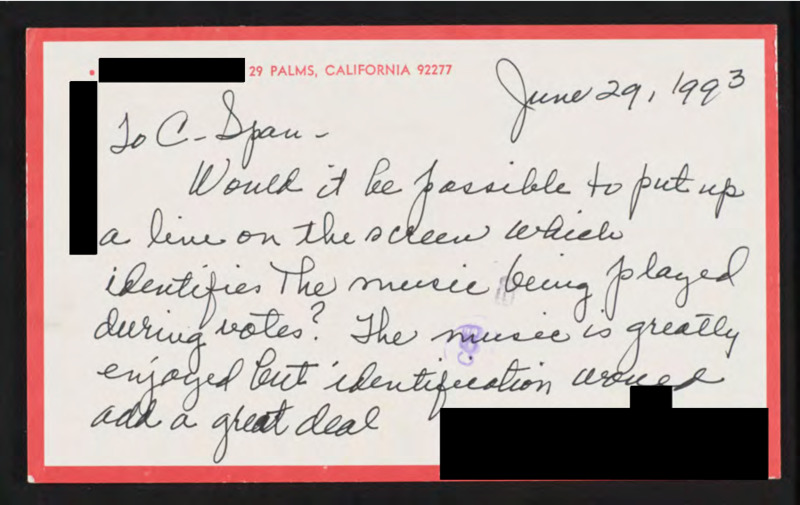 • 29 PALMS, CALIFORNIA 92277
June 29, 1993
To C-Span -
Would it be possible to put up
a line on the screen which
identifies the music being played
during votes? The music is greatly
enjoyed but identification would
add a great deal